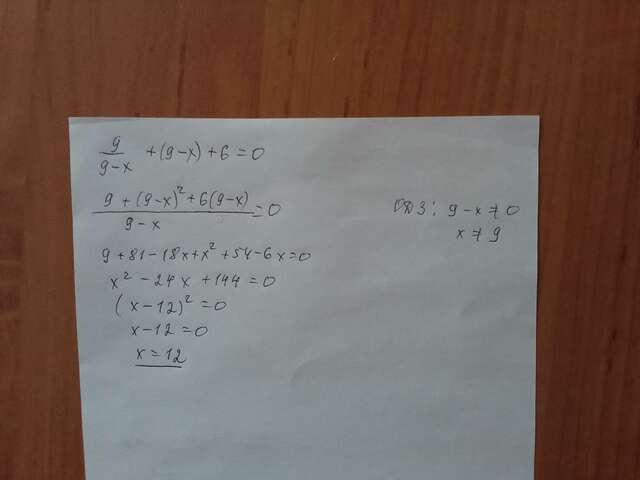 9/(9-x) + (9-x) + 6 = 0
(9 + (9-x)² + 6(9-x))/(9-x) = 0
9 + 81 - 18x + x² + 54 - 6x = 0
x² - 24x + 144 = 0
(x-12)² = 0
x - 12 = 0
x = 12
ОДЗ: 9 - x ≠ 0
x ≠ 9